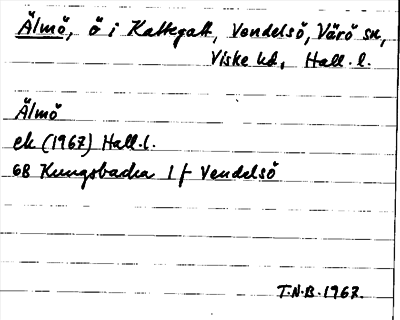 Älmö, ö i Kattegatt, Vendelsö, Värö sn,
Viske hd, Hall. l.
Älmö
ek (1967) Hall.l.
6B Kungsbacka 1 f Vendelsö
T.N.B. 1967.